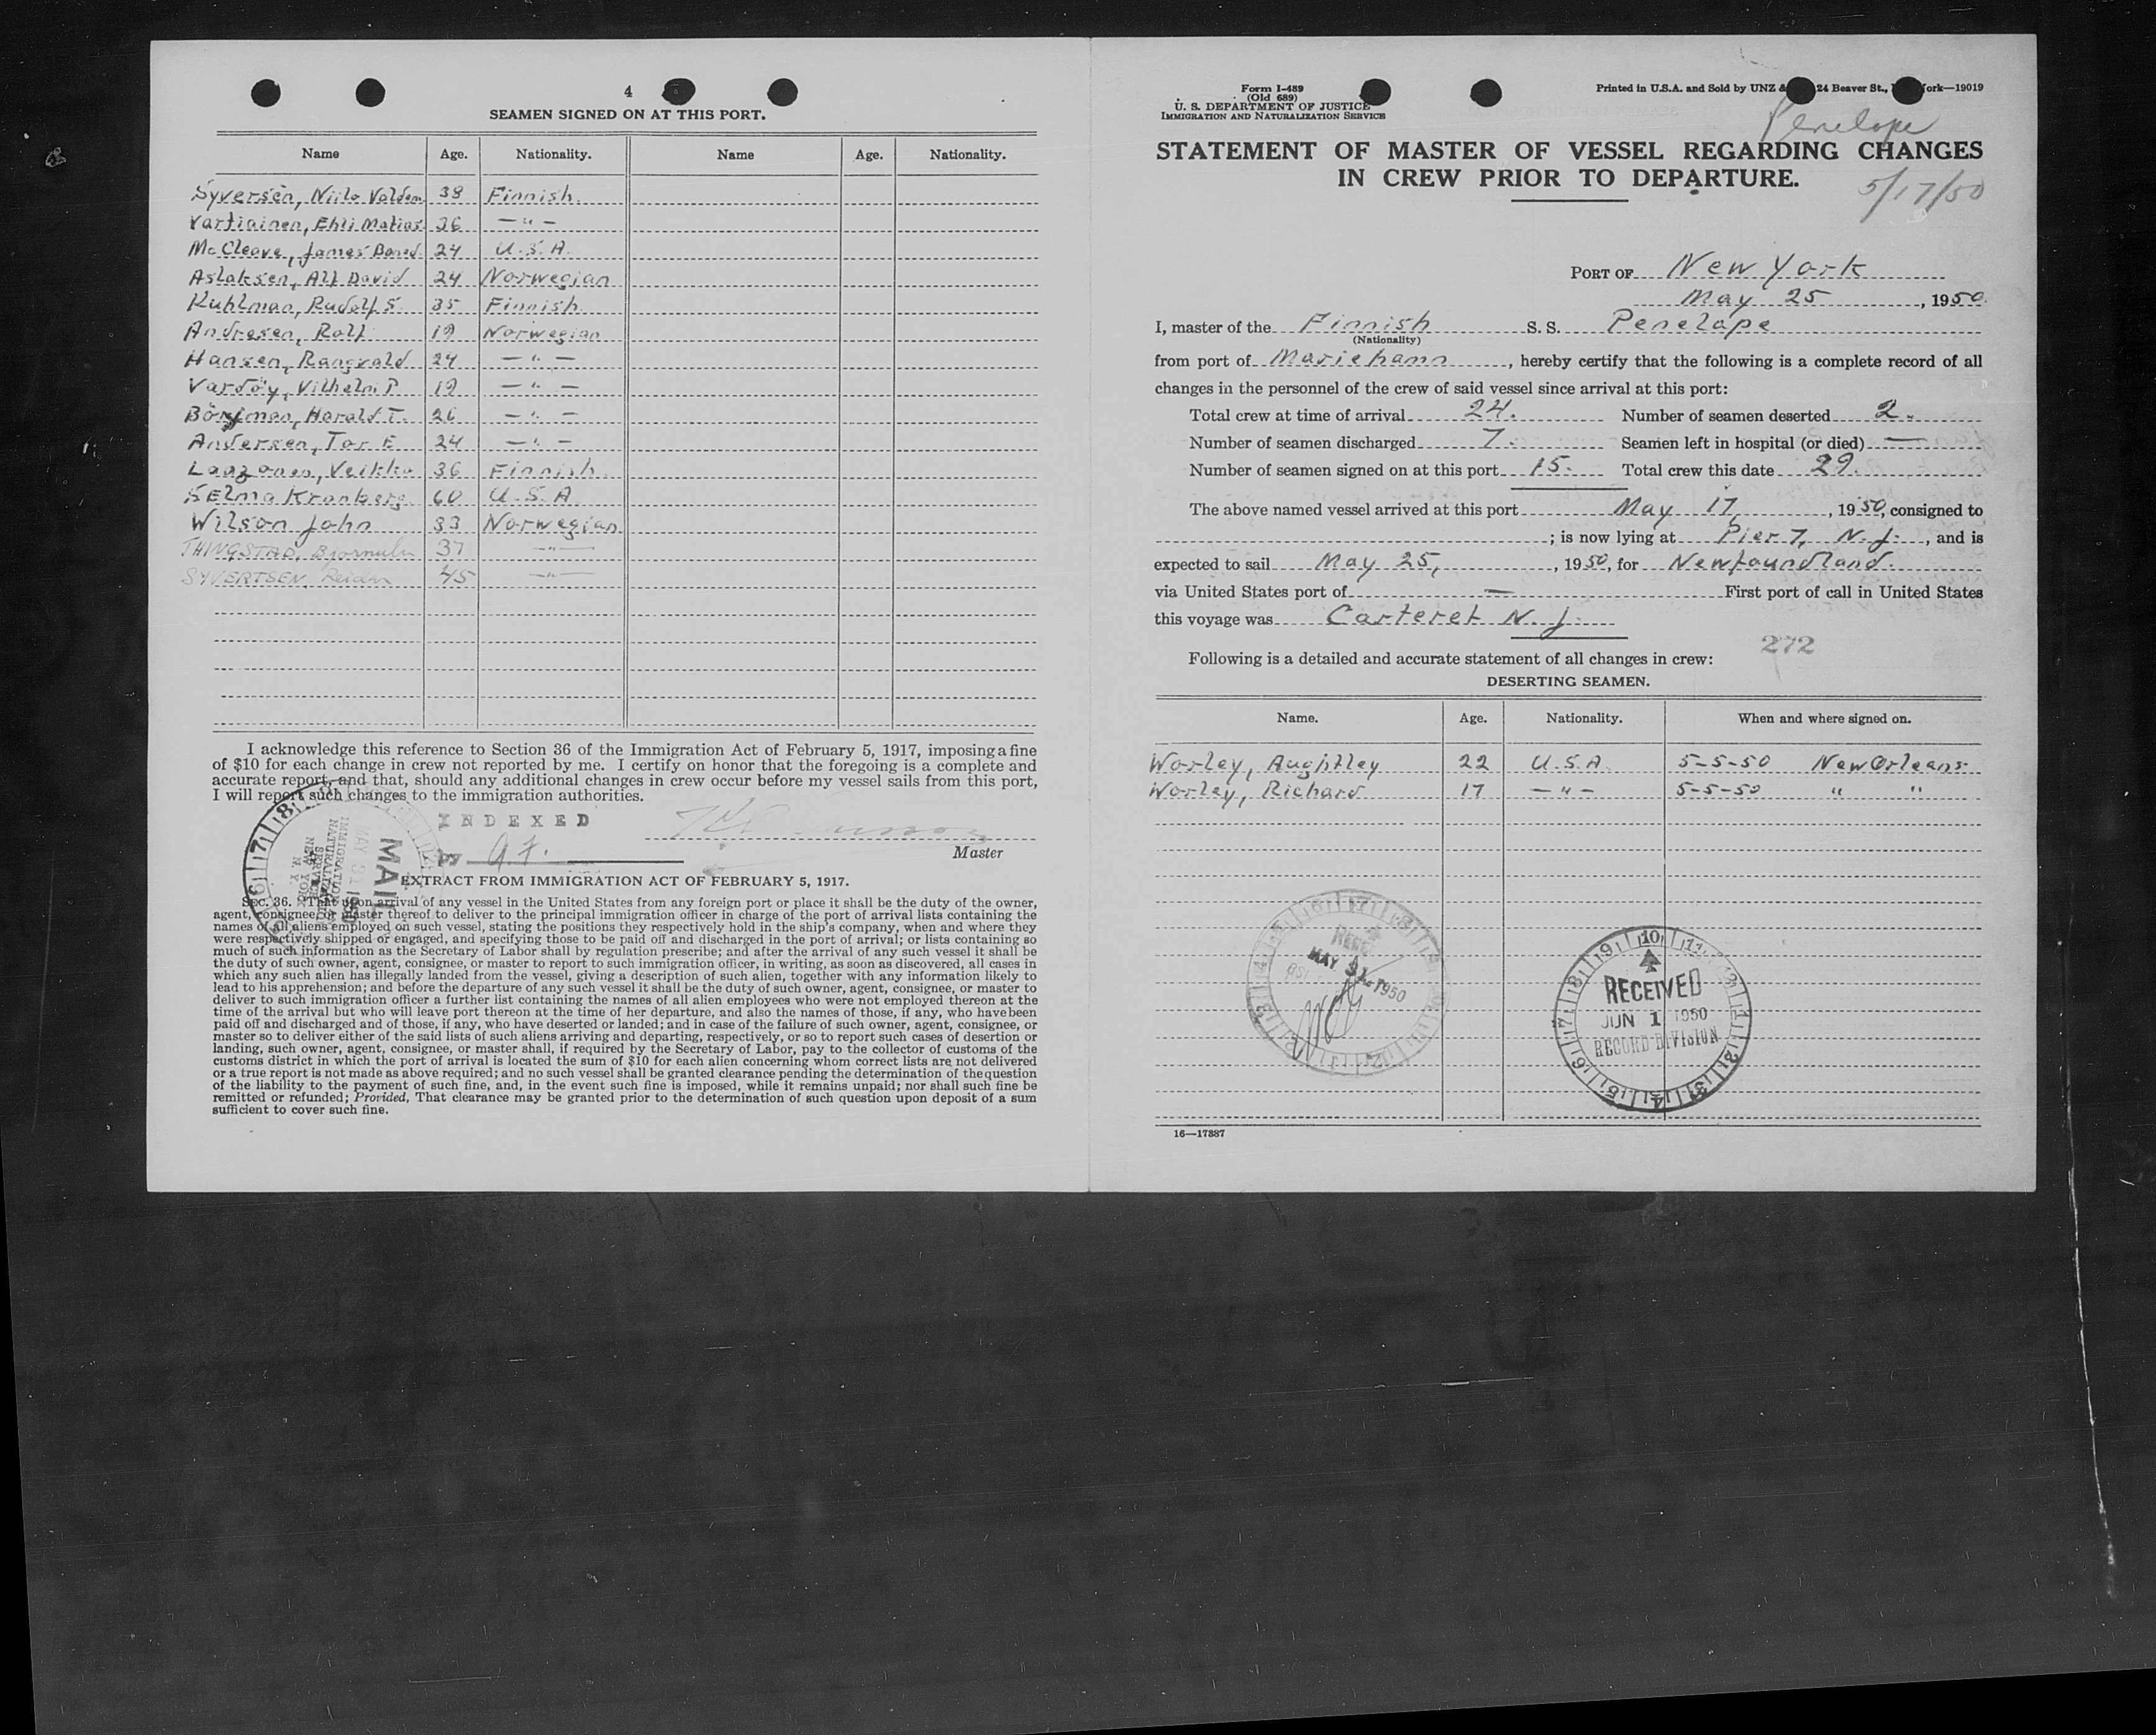 4
SEAMEN SIGNED ON AT THIS PORT.
Name Age. Nationality. Name Age. Nationality.
Syversen, Niilo Valdem 38 Finnish.
Vartiainen, Ehli Matias 36 — " —
McCleave, James 24 U.S.A.
Aslaksen, Alf David 24 Norwegian
Kuhlman, Rudolf S. 35 Finnish
Andresen, Rolf 19 Norwegian
Hansen, Rangvald 24 — " —
Vardöy, Vilhelm P 19 — " —
Harald T. 26 — " —
Andersen, Tor E 24 — " —
Veikko 36 Finnish.
Selma Kronberg 60 U.S.A
Wilson John 33 Norwegian
THINGSTAD, 37 — " —
SYVERTSEN, Reidar 45 — " —
I acknowledge this reference to Section 36 of the Immigration Act of February 5, 1917, imposing a fine
of $10 for each change in crew not reported by me. I certify on honor that the foregoing is a complete and
accurate report, and that, should any additional changes in crew occur before my vessel sails from this port,
I will report such changes to the immigration authorities.
INDEXED
by
Master
MAIL
IMMIGRATION AND
NATURALIZATION
SERVICE
NEW YORK
N. Y.
EXTRACT FROM IMMIGRATION ACT OF FEBRUARY 5, 1917.
Sec. 36. That upon arrival of any vessel in the United States from any foreign port or place it shall be the duty of the owner,
agent, consignee, or master thereof to deliver to the principal immigration officer in charge of the port of arrival lists containing the
names of all aliens employed on such vessel, stating the positions they respectively hold in the ship's company, when and where they
were respectively shipped or engaged, and specifying those to be paid off and discharged in the port of arrival; or lists containing so
much of such information as the Secretary of Labor shall by regulation prescribe; and after the arrival of any such vessel it shall be
the duty of such owner, agent, consignee, or master to report to such immigration officer, in writing, as soon as discovered, all cases in
which any such alien has illegally landed from the vessel, giving a description of such alien, together with any information likely to
lead to his apprehension; and before the departure of any such vessel it shall be the duty of such owner, agent, consignee, or master to
deliver to such immigration officer a further list containing the names of all alien employees who were not employed thereon at the
time of the arrival but who will leave port thereon at the time of her departure, and also the names of those, if any, who have been
paid off and discharged and of those, if any, who have deserted or landed; and in case of the failure of such owner, agent, consignee, or
master so to deliver either of the said lists of such aliens arriving and departing, respectively, or so to report such cases of desertion or
landing, such owner, agent, consignee, or master shall, if required by the Secretary of Labor, pay to the collector of customs of the
customs district in which the port of arrival is located the sum of $10 for each alien concerning whom correct lists are not delivered
or a true report is not made as above required; and no such vessel shall be granted clearance pending the determination of the question
of the liability to the payment of such fine, and, in the event such fine is imposed, while it remains unpaid; nor shall such fine be
remitted or refunded; Provided, That clearance may be granted prior to the determination of such question upon deposit of a sum
sufficient to cover such fine.
Form I-489
(Old 689)
U. S. DEPARTMENT OF JUSTICE
IMMIGRATION AND NATURALIZATION SERVICE
Printed in U.S.A. and Sold by UNZ & 24 Beaver St., ork—19019
Penelope
STATEMENT OF MASTER OF VESSEL REGARDING CHANGES
IN CREW PRIOR TO DEPARTURE.
5/17/50
PORT OF New York
May 25, 1950
I, master of the Finnish S. S. Penelope
(Nationality)
from port of Mariehamn, hereby certify that the following is a complete record of all
changes in the personnel of the crew of said vessel since arrival at this port:
Total crew at time of arrival 24. Number of seamen deserted 2.
Number of seamen discharged 7. Seamen left in hospital (or died) —
Number of seamen signed on at this port 15. Total crew this date 29.
The above named vessel arrived at this port May 17, 1950, consigned to
; is now lying at Pier 7, N. J., and is
expected to sail May 25, , 1950, for Newfoundland.
via United States port of — First port of call in United States
this voyage was Carteret N. J.
272
Following is a detailed and accurate statement of all changes in crew:
DESERTING SEAMEN.
Name. Age. Nationality. When and where signed on.
Worley, Aughtley 22 U.S.A. 5-5-50 New Orleans
Worley, Richard 17 — " — 5-5-50 " "
MAY 31 1950
RECEIVED
JUN 1 1950
RECORD DIVISION
16—17887